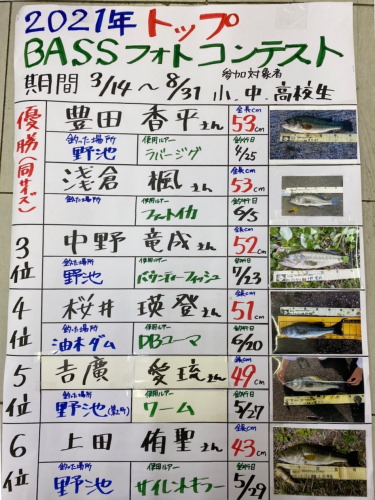 2021年 トップ
BASSフォトコンテスト
期間 3/14～8/31 参加対象者 小、中、高校生
優勝(同サイズ)
豊田 香平さん 全長cm 53cm
釣った場所 野池 使用ルアー ラバージグ 釣行日 4/25
浅倉 楓さん 全長cm 53cm
釣った場所 使用ルアー 釣行日 6/5
3位 中野 竜成さん 全長cm 52cm
釣った場所 野池 使用ルアー バウンティーフィッシュ 釣行日 7/23
4位 桜井 瑛登さん 全長cm 51cm
釣った場所 油木ダム 使用ルアー DBユーマ 釣行日 6/20
5位 吉廣 愛琉さん 全長cm 49cm
釣った場所 野池 使用ルアー ワーム 釣行日 5/27
6位 上田 侑聖さん 全長cm 43cm
釣った場所 野池 使用ルアー サイレントキラー 釣行日 5/29